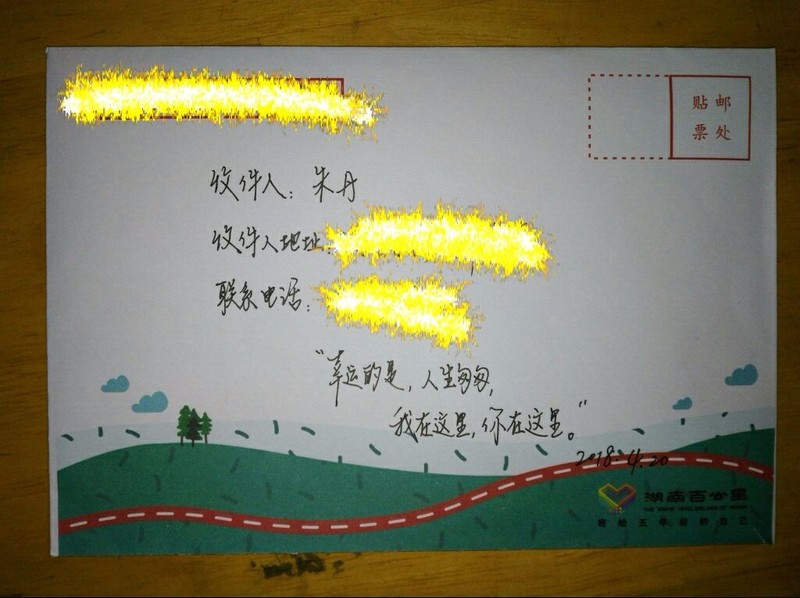 贴邮
票处
收件人：朱丹
收件人地址：
联系电话：
“幸运的是，人生匆匆，
我在这里，你在这里。”
2018.4.20
湖南百公里
寄给五年后的自己